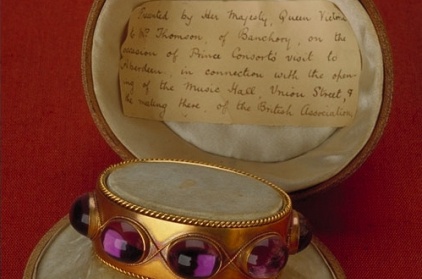 Presented by Her Majesty, Queen Victoria
to Mrs Thomson, of Banchory, on the
occasion of Prince Consort's visit to
Aberdeen, in connection with the open-
ing of the Music Hall, Union Street, &
his making there, of the British Association